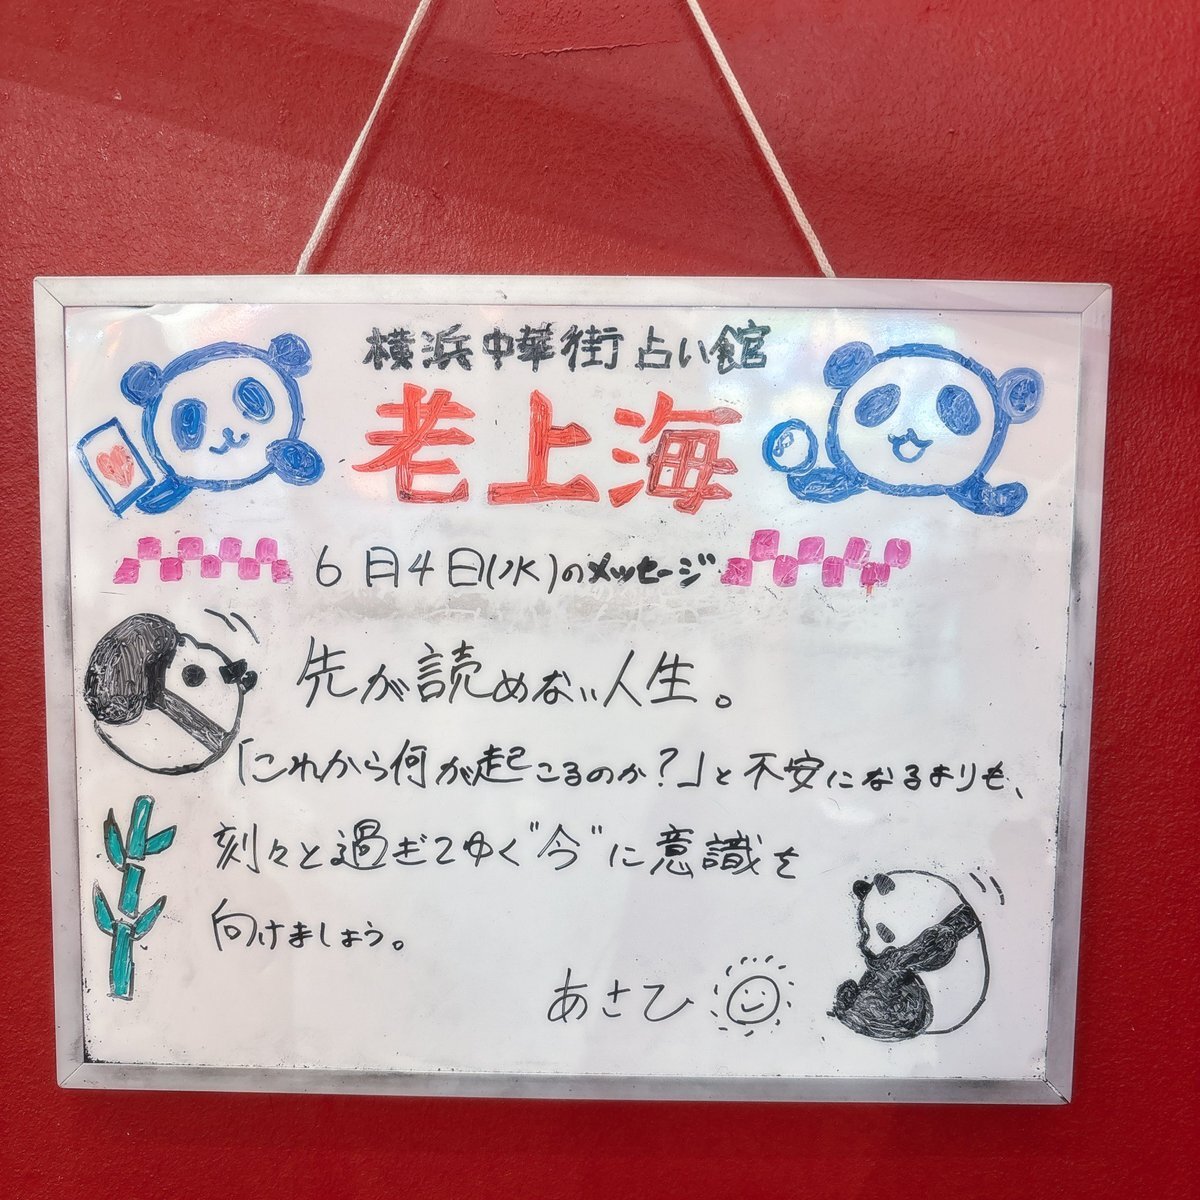 横浜中華街占い館
老上海
6月4日(水)のメッセージ
先が読めない人生。
「これから何が起こるのか?」と不安になるよりも、
刻々と過ぎてゆく"今"に意識を
向けましょう。
あさひ